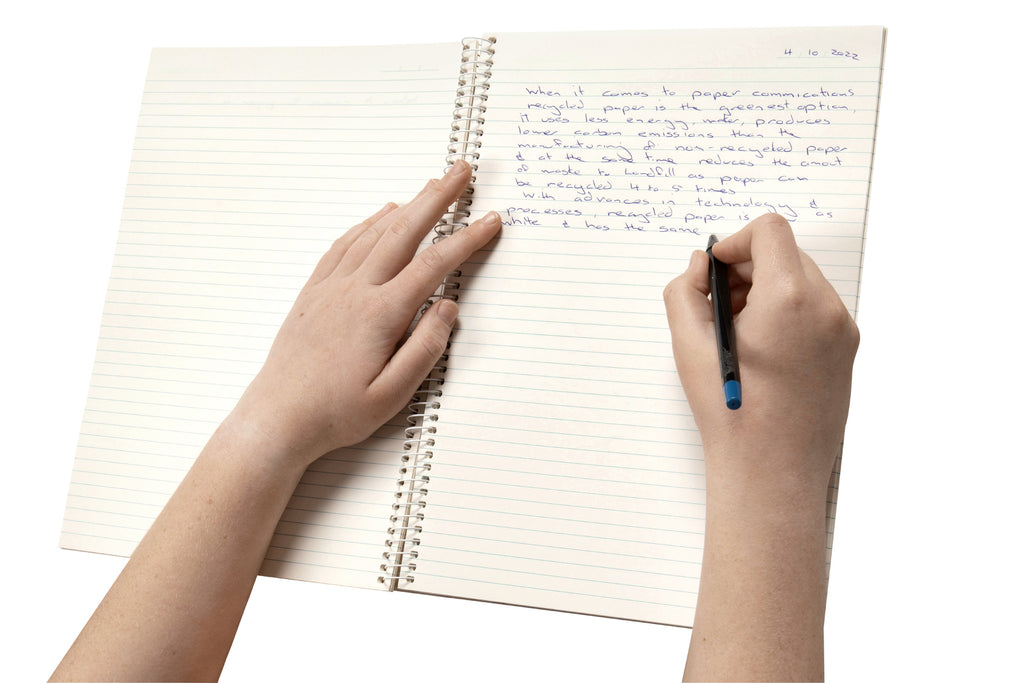 4 . 10 . 2022
When it comes to paper commications
recycled paper is the greenest option,
it uses less energy, water, produces
lower carbon emissions than the
manufacturing of non-recycled paper
& at the same time reduces the amont
of waste to landfill as paper can
be recycled 4 to 5 times
With advances in technology &
processes, recycled paper is as
white & has the same